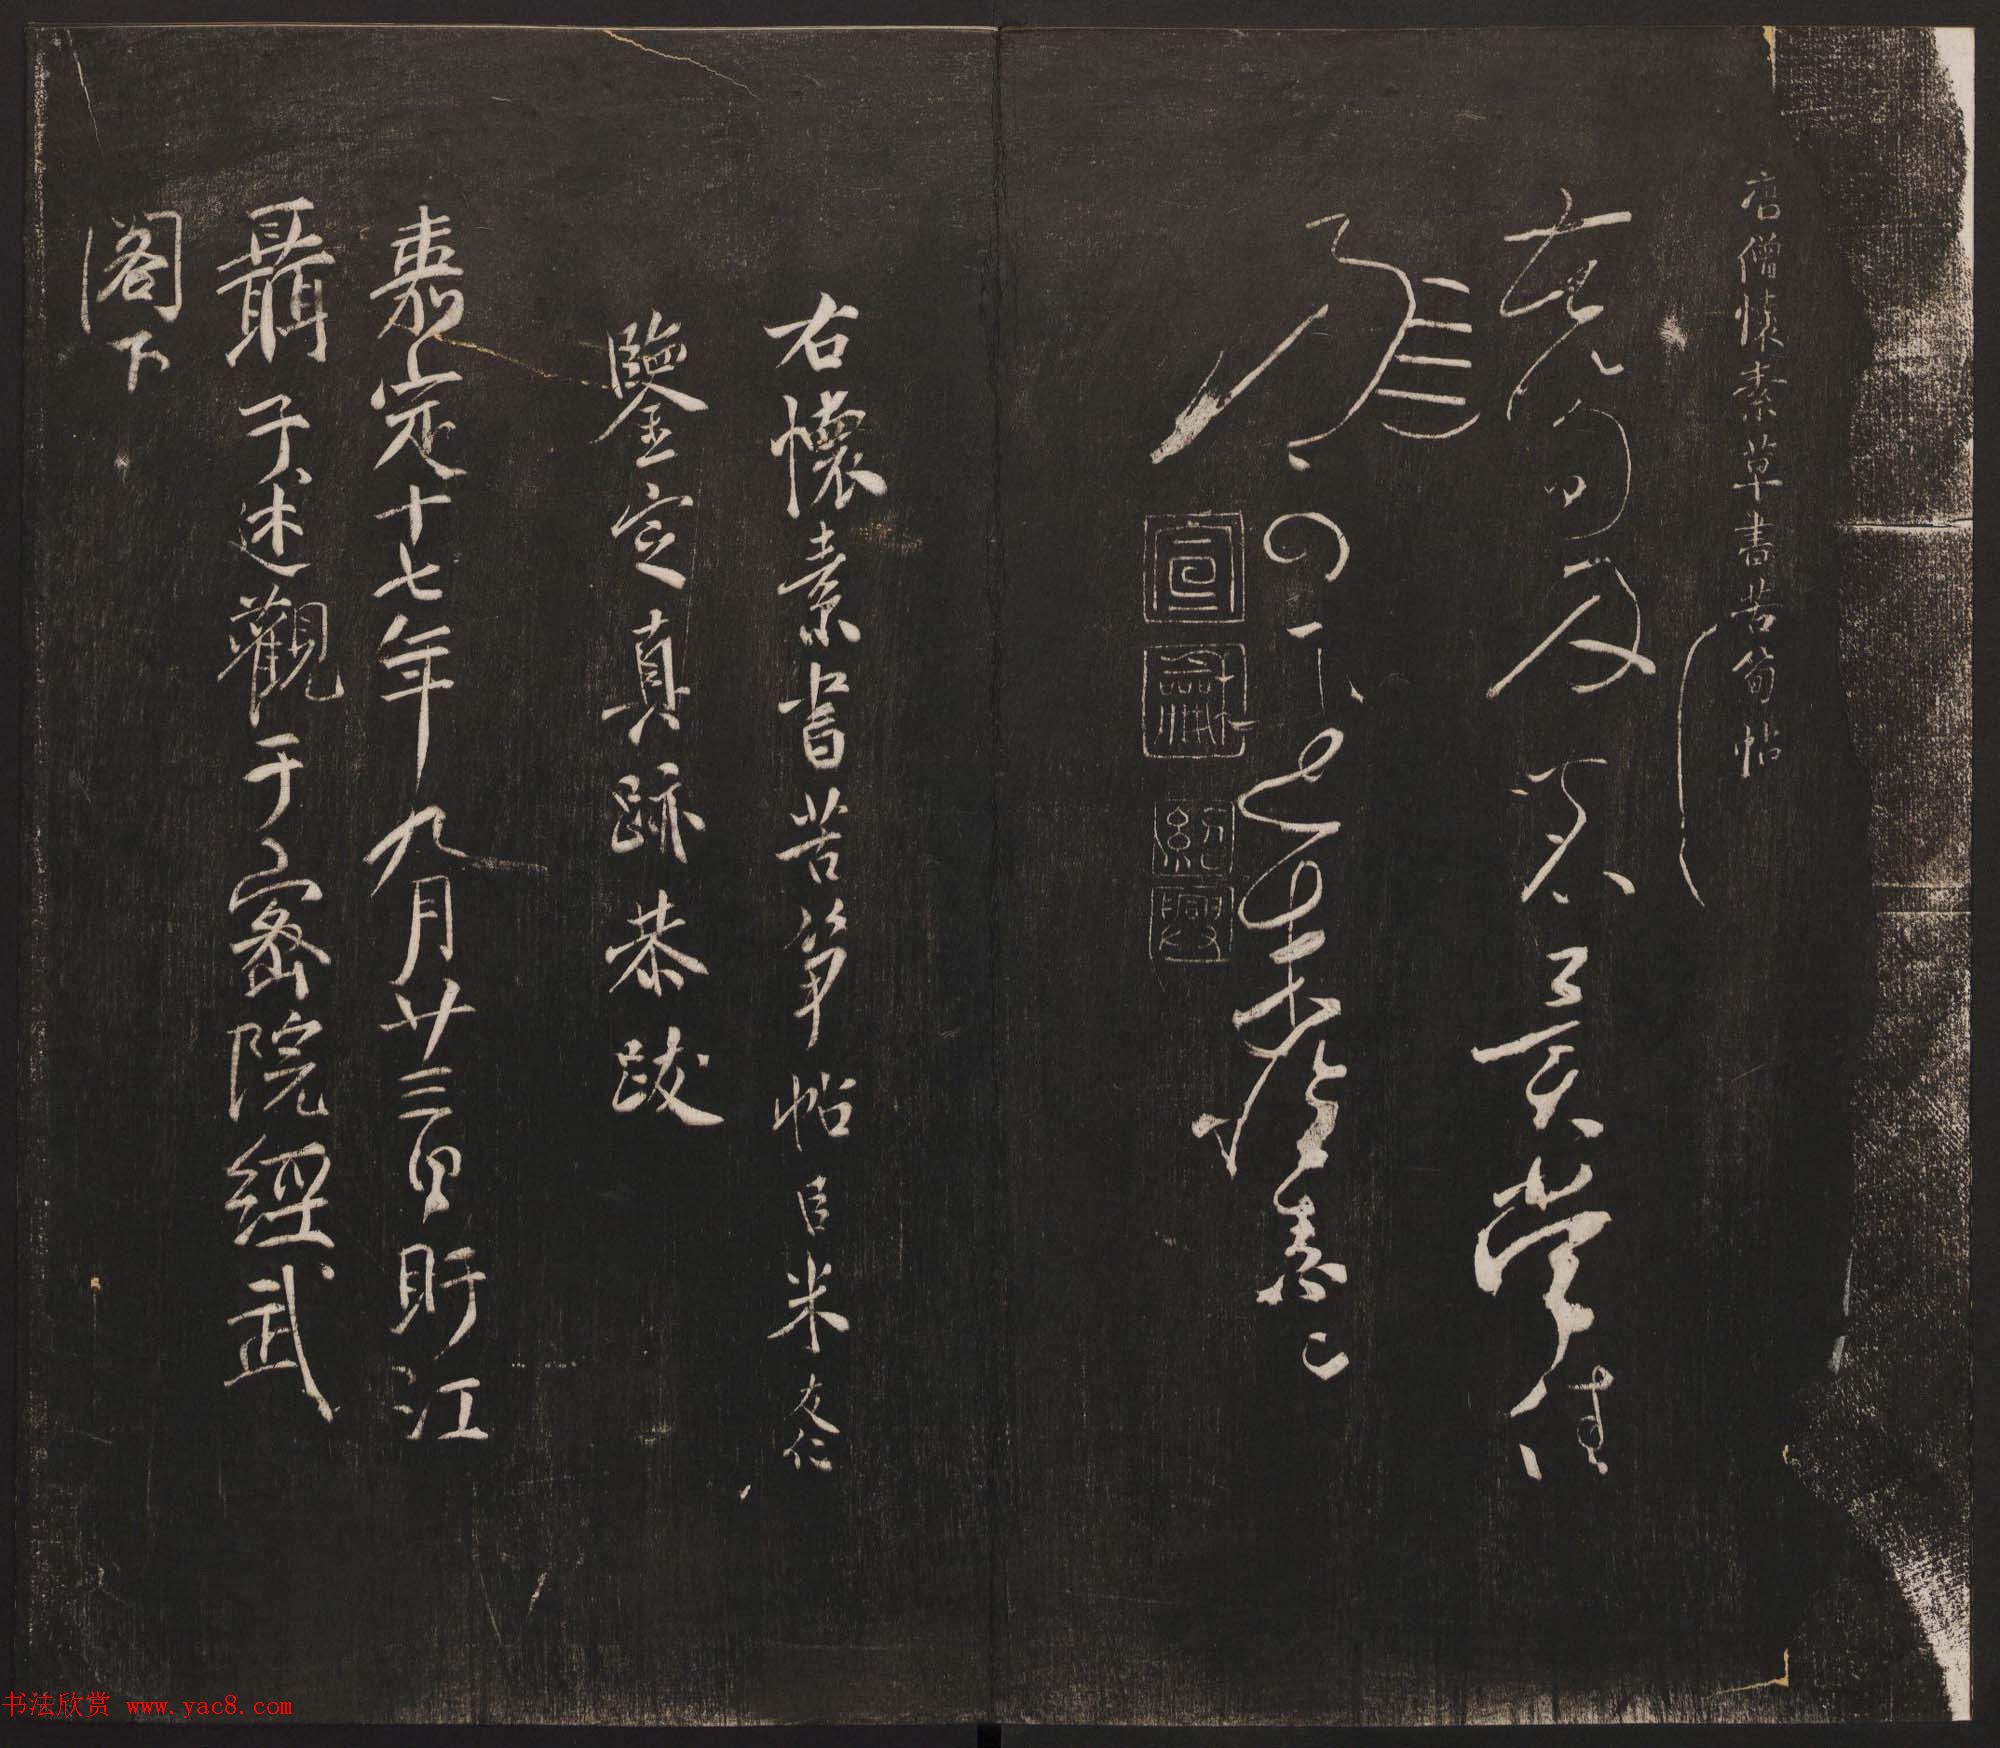 唐僧懷素草書苦筍帖
苦筍及茗異常佳
乃可逕來懷素上
宣龢
紹興
右懷素書苦笋帖臣米友仁
鑒定真跡恭跋
嘉定十七年九月廿三日盱江
聶子述觀于密院經武
閣下
书法欣赏 www.yac8.com